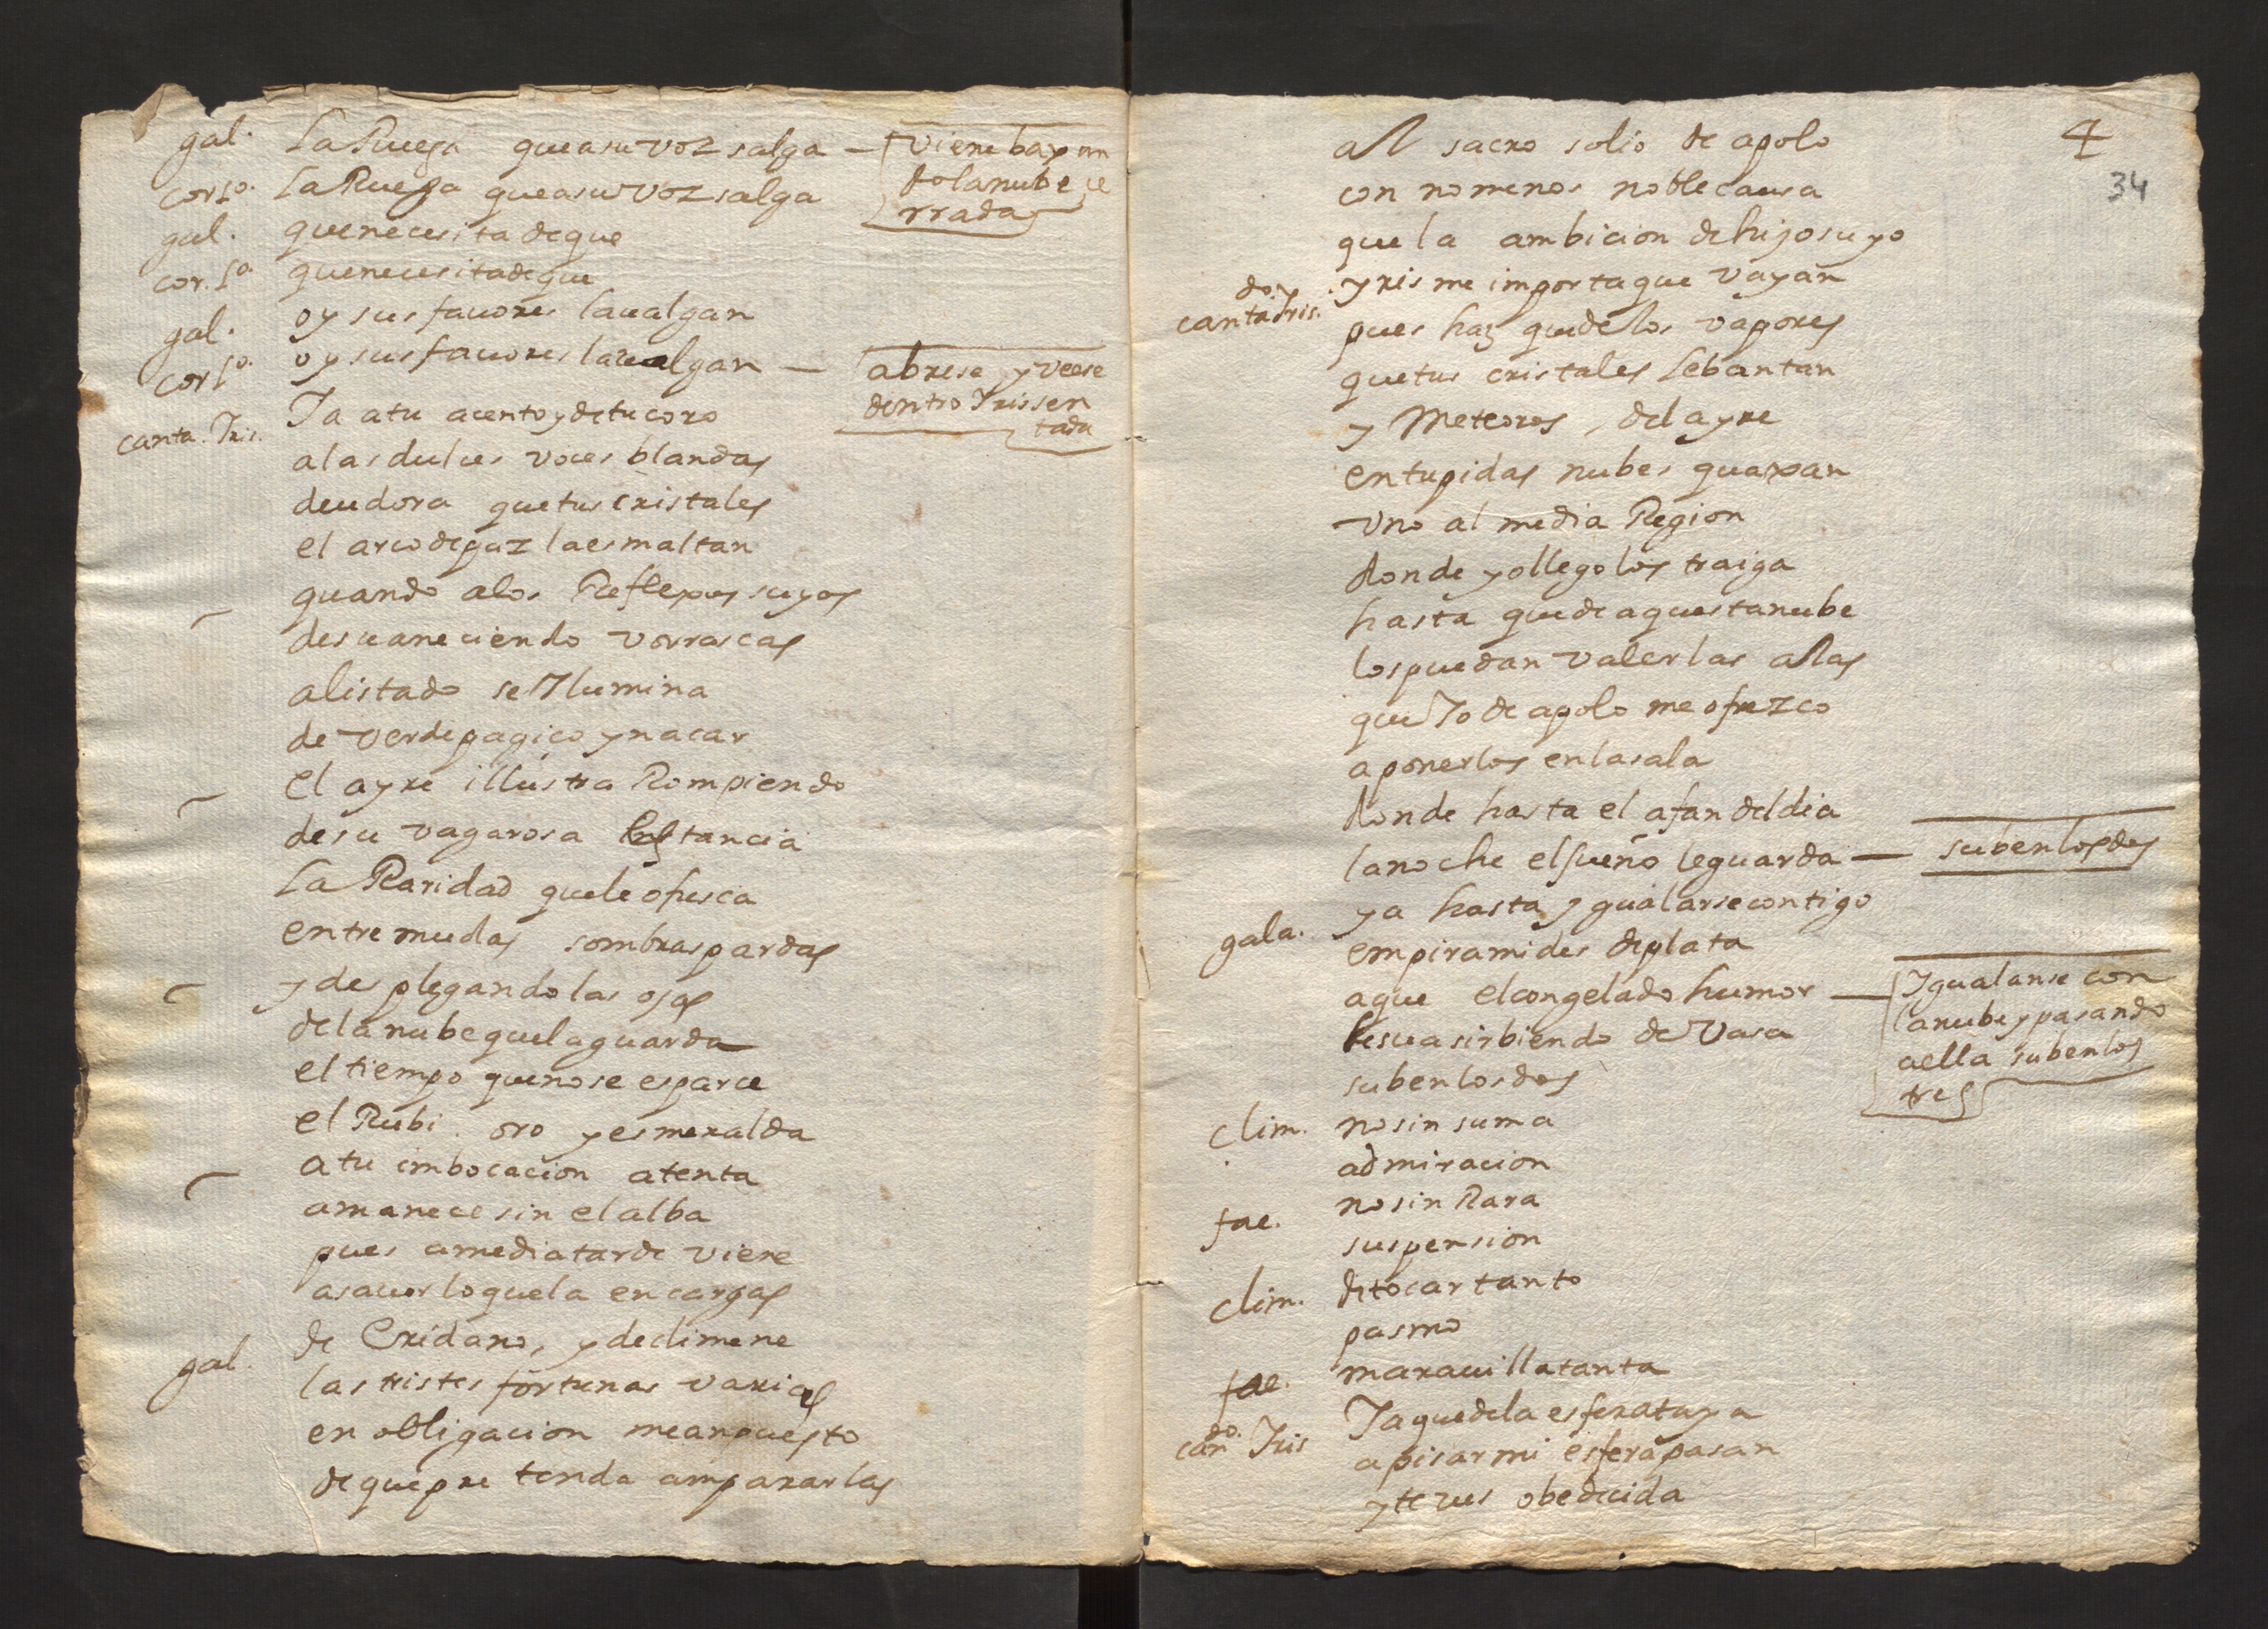 gal. La Ruega queasu voz salga — viene bajan
dolanube ce
rrada
cor 1o. La Ruega queasu voz salga
gal. quenecesita deque
cor. 1o. quenecesitadeque
gal. oy sus fauores laualgan
cor 1o. oy sus fauores laualgan — abrese y veese
dentro Iris sen
tada
canta. Iris. Ja atu acento y detucoro
alasdulces voces blandas
deudora quetus cristales
el arco depaz laesmaltan
quando alos Reflexos suyos
desuaneciendo vorrascas
alistado se Ilumina
de verde pagico y nacar
el ayre illustra Rompiendo
desu vagarosa Estancia
La Raridad quele ofusca
entre mudas sombras pardas
y desplegandolas ojas
dela nube quelaguarda
el tiempo quenose esparce
el Rubi. oro y esmeralda
atu imbocacion atenta
amanece sin el alba
pues amediatarde viene
asauer loquela encargas
gal. de Eridano, y declimene
las tristes fortunas varias
en obligacion meanpuesto
deque pretenda ampararlas
4
34
al sacro solio de apolo
con nomenos noble causa
que la ambicion dehijosuyo
yris me importaque vayan
do y
canta Iris. pues haz quede los vapores
quetus cristales lebantan
y Meteoros, del ayre
entupidas nubes quaxan
uno al media Region
donde yollego los traiga
hasta quede aquestanube
lospuedan valerlas alas
que Jo de apolo me ofrezco
aponerlos enlasala
donde hasta el afan deldia
lanoche elsueño leguarda — subenlosdos
gala. ya hasta ygualarsecontigo
empiramides deplata
aque elcongelado humor — Igualanse con
lanube y pasando
aella subenlos
tres
lesuasirbiendo de Vasa
subenlosdos
clim. nosin suma
admiracion
fae. nosin Rara
suspension
clim. detocar tanto
pasmo
fae. marauillatanta
do.
can Iris Ja quedela esferatuya
apisarmi esfera pasan
yteves obedecida